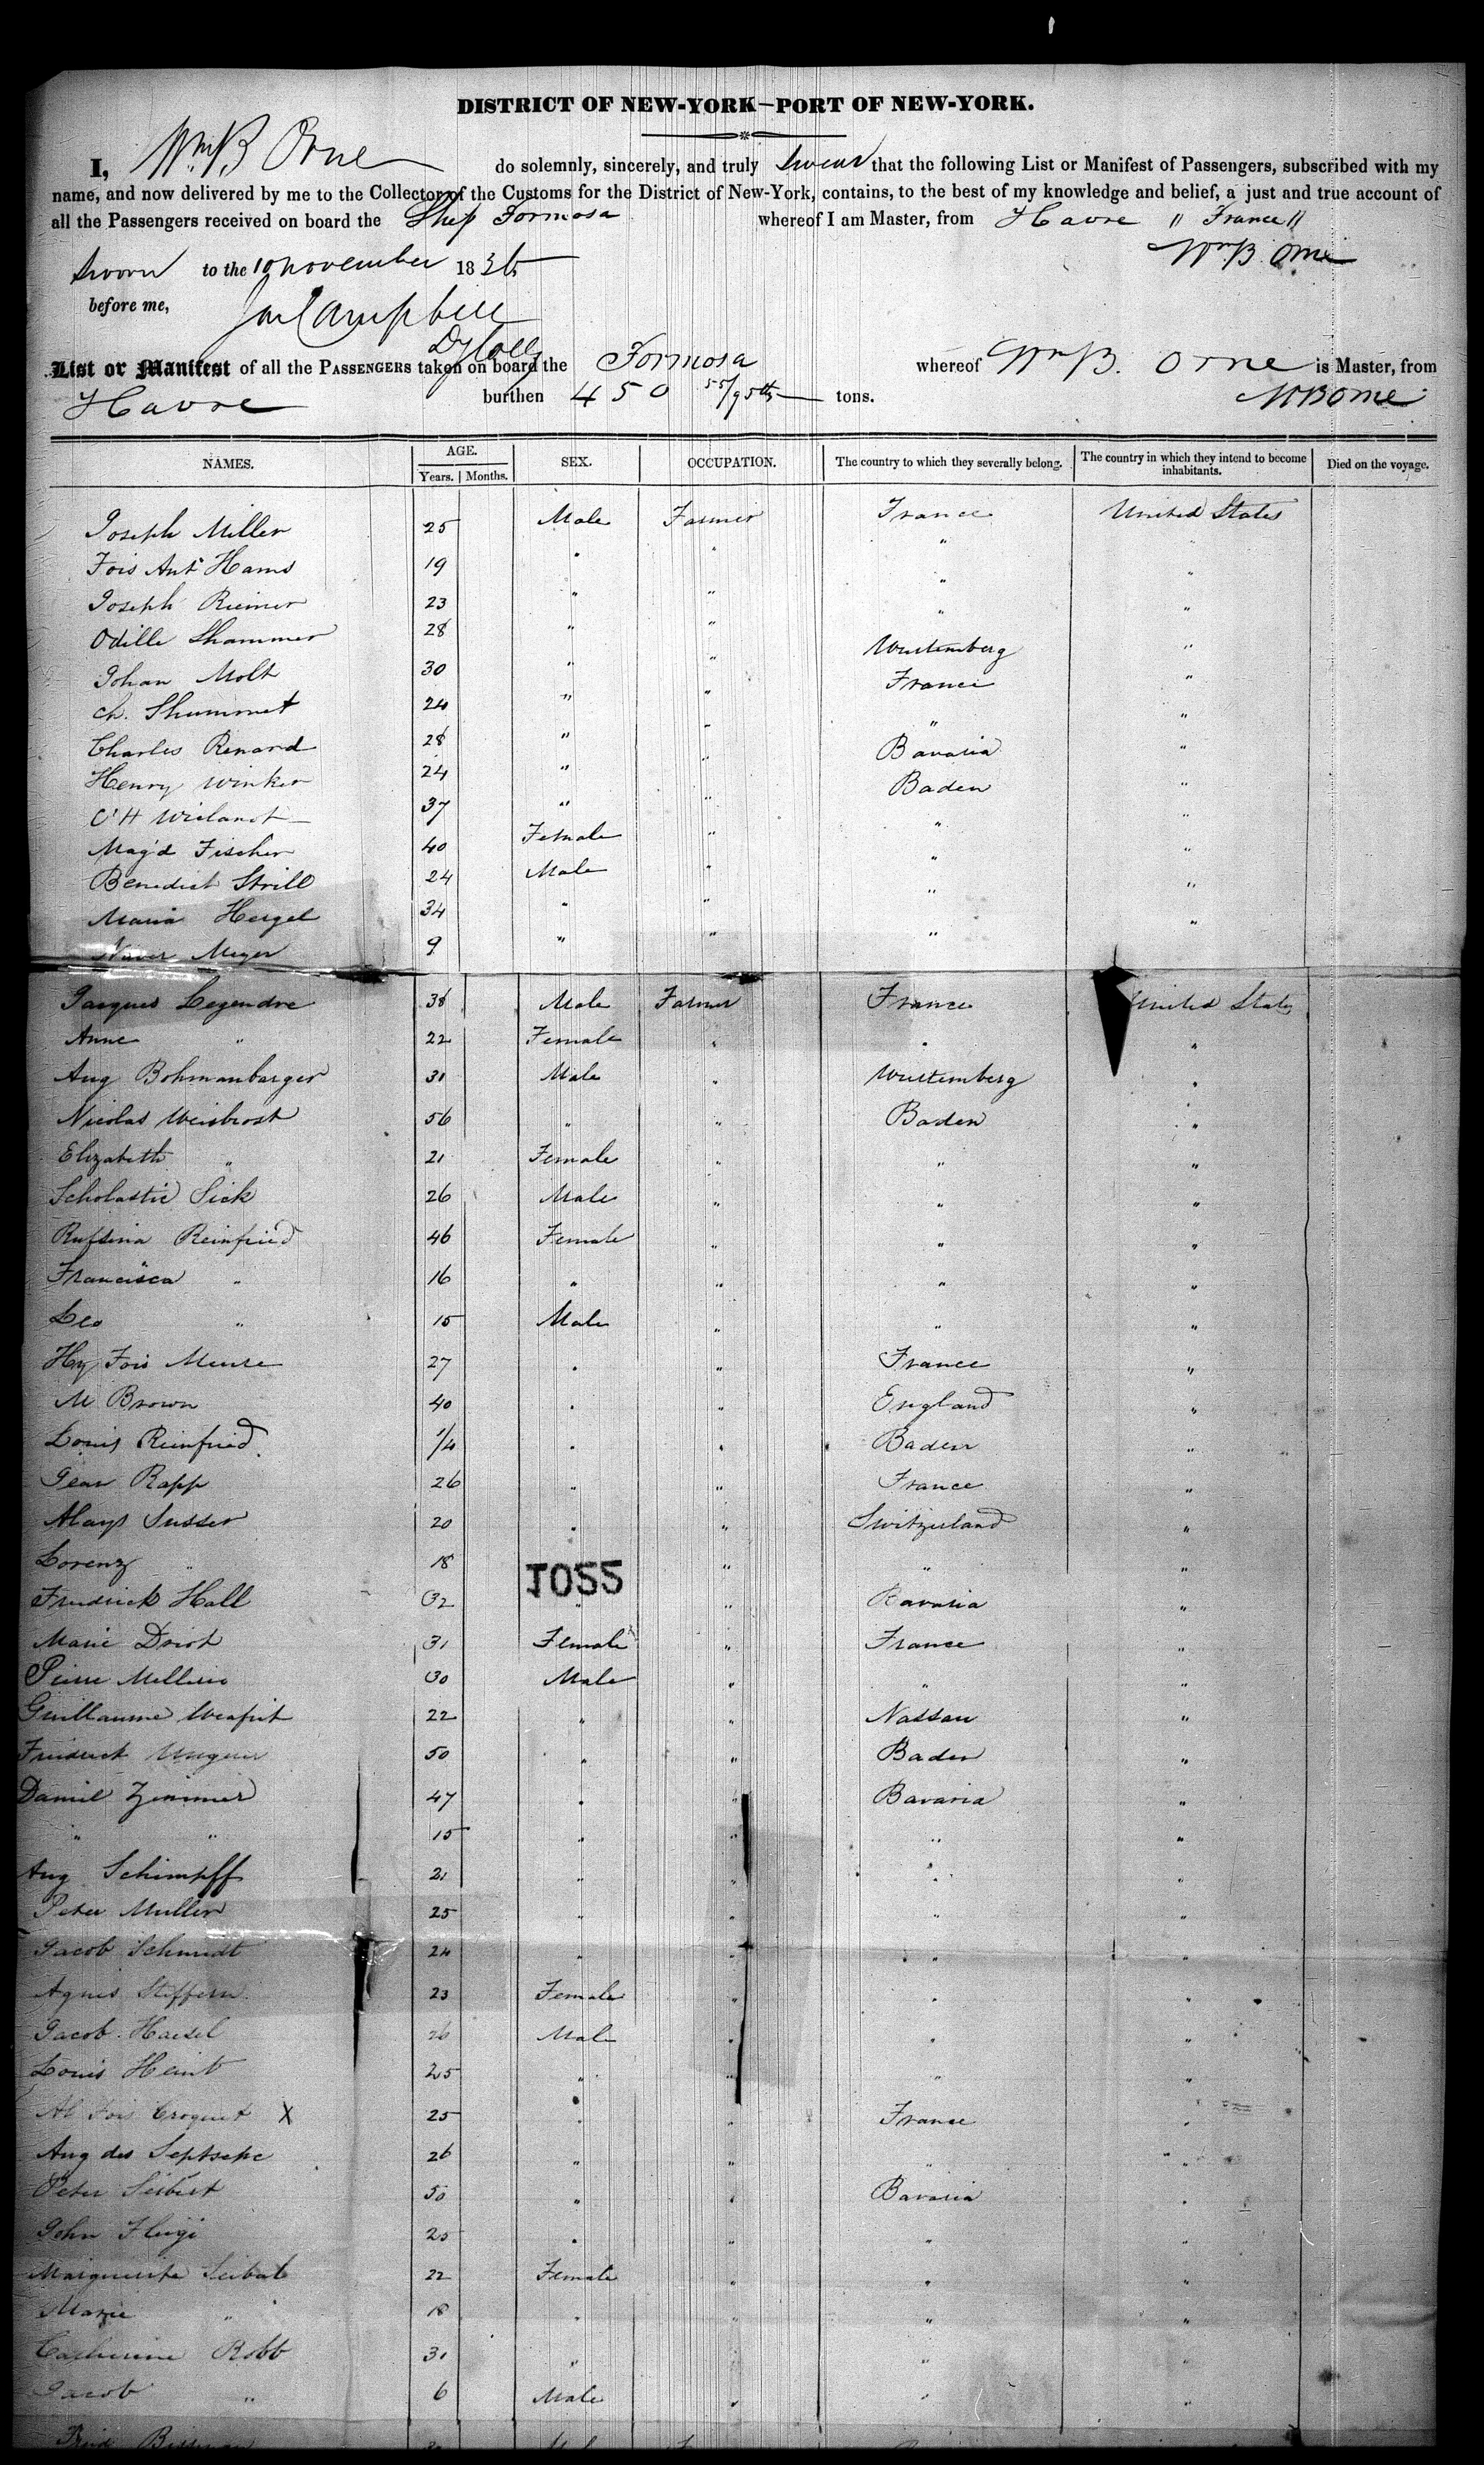 DISTRICT OF NEW-YORK—PORT OF NEW-YORK.
I, Wm B Orne do solemnly, sincerely, and truly swear that the following List or Manifest of Passengers, subscribed with my
name, and now delivered by me to the Collector of the Customs for the District of New-York, contains, to the best of my knowledge and belief, a just and true account of
all the Passengers received on board the Ship Formosa whereof I am Master, from Havre " France "
Wm B. Orne
Sworn to the 10 november 1836
before me, Campbell
Dy Coll
List or Manifest of all the PASSENGERS taken on board the Formosa whereof Wm B. Orne is Master, from
Havre burthen 450 55/95ths tons. WB Orne
NAMES. AGE. SEX. OCCUPATION. The country to which they severally belong. The country in which they intend to become inhabitants. Died on the voyage.
Years. Months.
Joseph Miller 25 Male Farmer France United States
Fois Ant Hams 19 " " " "
Joseph Riemer 23 " " " "
Odille Shammer 28 " " " "
Johan Molt 30 " " Wurtemberg "
Ch. Shummet 24 " " France "
Charles Renard 28 " " " "
Henry Winker 24 " " Bavaria "
C H Wielandt 37 " " Baden "
Mag'd Fischer 40 Female " " "
Benedict Strill 24 Male " " "
Maria Hergel 34 " " " "
Xaver Meyer 9 " " " "
Jacques Legendre 38 Male Farmer France United States
Anne " 22 Female " " "
Aug Bohmanbarger 31 Male " Wurtemberg "
Nicolas Weisbrost 56 " " Baden "
Elizabeth " 21 Female " " "
Scholastic Sick 26 Male " " "
Ruffina Reinfried 46 Female " " "
Francisca " 16 " " " "
Leo " 15 Male " " "
Hy Fois Meure 27 " " France "
M Brown 40 " " England "
Louis Reinfried 1/4 " " Baden "
Jean Rapp 26 " " France "
Aloys Susser 20 " " Switzerland "
Lorenz " 18 " " " "
JOSS
Frederick Hall 32 " " Bavaria "
Marie Driot 31 Female " France "
Pierre Mellerio 30 Male " " "
Guillaume 22 " " Nassau "
Frederick Wagner 50 " " Baden "
Daniel Zimmer 47 " " Bavaria "
" " 15 " " " "
Aug Schimpff 21 " " " "
Peter Muller 25 " " " "
Jacob Schmidt 24 " " " "
Agnes Steffern 23 Female " " "
Jacob Haesel 26 Male " " "
Louis Heint 25 " " " "
Al Fois Croquet X 25 " " France "
Aug des 26 " " " "
Peter Seibert 50 " " Bavaria "
John Flugi 25 " " " "
Marguerite Seibel 22 Female " " "
Marie " 18 " " " "
Catherine Robb 31 " " " "
Jacob " 6 Male " " "